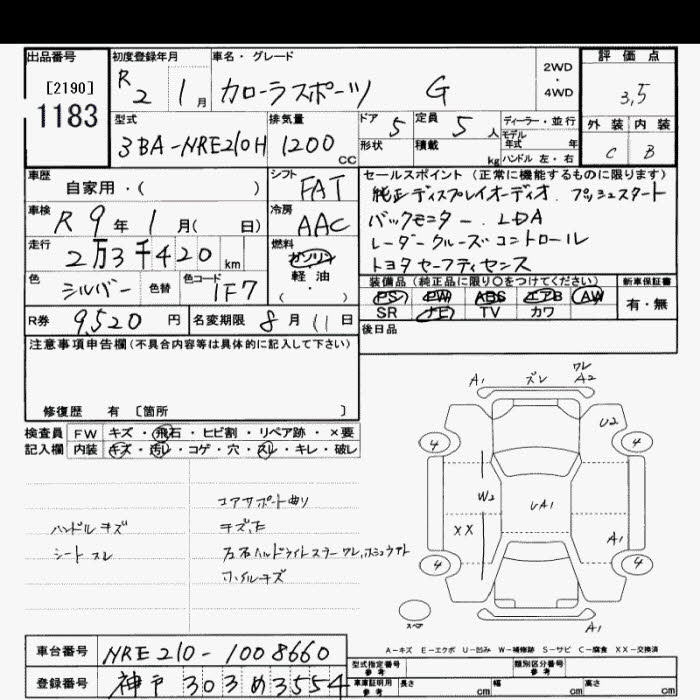 出品番号
[2190]
1183
初度登録年月
R 2 1 月
車名・グレード
カローラスポーツ G
2WD
・
4WD
評価点
3,5
外装 内装
C B
型式
3BA-NRE210H
排気量
1200 CC
ドア 5
定員 5 人
形状
積載 kg
ディーラー・並行
モデル
年式 年
ハンドル 左・右
車歴
自家用・( )
シフト
FAT
車検
R 9 年 1 月( 日)
冷房
AAC
走行
2万3千420 km
燃料
ガソリン
軽・油
・( )
色
シルバー
色替
色コード
1F7
R券 9,520 円
名変期限 8 月 11 日
セールスポイント(正常に機能するものに限ります)
純正ディスプレイオーディオ.プッシュスタート
バックモニター.LDA
レーダークルーズコントロール
トヨタセーフティセンス
装備品(純正品に限り○をつけてください)
PS PW ABS エアB AW
SR ナビ TV カワ
新車保証書
有・無
後日品
注意事項申告欄(不具合内容等は具体的に記入して下さい)
修復歴 有 〔箇所 〕
検査員 FW キズ・飛石・ヒビ割・リペア跡・×要
記入欄 内装 キズ・汚レ・コゲ・穴・スレ・キレ・破レ
コアサポート曲り
ハンドルキズ
シートスレ
ホイルキズ
A1 ズレ ワレ A2
U2
4 4
W2
UA1
XX
A1
4 4
スペア
A1
A-キズ E-エクボ U-凹み W-補修跡 S-サビ C-腐食 XX-交換済
車台番号 NRE210-1008660
登録番号 神戸 303 め 3554
型式指定番号
参考
類別区分番号
参考
車庫証明用
参考
長さ cm 幅 cm 高さ cm